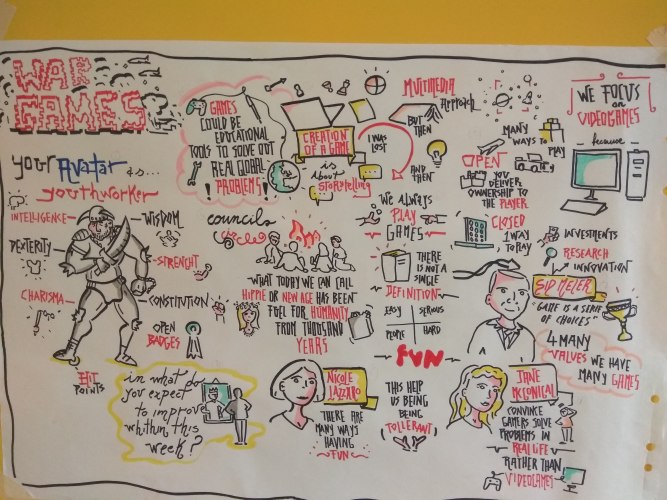 WAR
GAMES
?
your AVatar is...
youthworker
INTELLIGENCE
WISDOM
DEXTERITY
STRENGHT
CHARISMA
CONSTITUTION
OPEN
BADGES
HIT
POINTS
in what do
you expect
to improve
whithin this
week?
GAMES
COULD BE
EDUCATIONAL
TOOLS TO SOLVE OUT
REAL GLOBAL
PROBLEMS!
CREATION
OF A GAME
is
About
STORYTELLING
I WAS
LOST
MULTIMEDIA
Approach
BUT
THEN
AND
THEN
councils
WHAT TODAY WE CAN CALL
HIPPIE OR NEW AGE HAS BEEN
FUEL FOR HUMANITY
FROM THOUSAND
YEARS
WE ALWAYS
PLAY
GAMES
THERE
IS NOT A
SINGLE
DEFINITION
EASY
SERIOUS
PEOPLE
HARD
FUN
MANY
WAYS TO
PLAY
OPEN
YOU
DELIVER
OWNERSHIP TO
THE PLAYER
CLOSED
1 WAY
TO PLAY
WE FOCUS
on
VIDEOGAMES
because
INVESTMENTS
RESEARCH
INNOVATION
SID MEIER
"GAME IS A SERIE
OF CHOICES"
4 MANY
VALUES WE HAVE
MANY GAMES
NICOLE
LAZZARO
THERE ARE
MANY WAYS
HAVING
FUN
THIS HELP
US BEING
BEING
TOLLERANT
JANE
McGONIGAL
CONVINCE
GAMERS SOLVE
PROBLEMS IN
REAL LIFE
RATHER THAN
VIDEOGAMES